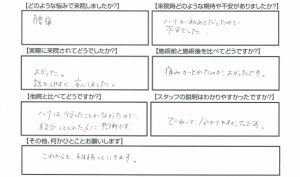 【どのような悩みで来院しましたか?】
腰痛
【来院時どのような期待や不安がありましたか?】
ハリが初めてだったので
不安でした。
【実際に来院されてどうでしたか?】
よかった。
話もしやすく安心しました。
【施術前と施術後を比べてどうですか?】
痛みがとれたのがよかったです。
【他院と比べてどうですか?】
ハリは行ったことがなかったので、
【スタッフの説明はわかりやすかったですか?】
ていねいで、わかりやすかったです。
【その他、何かひとことお願いします】
これからも継続していきます。